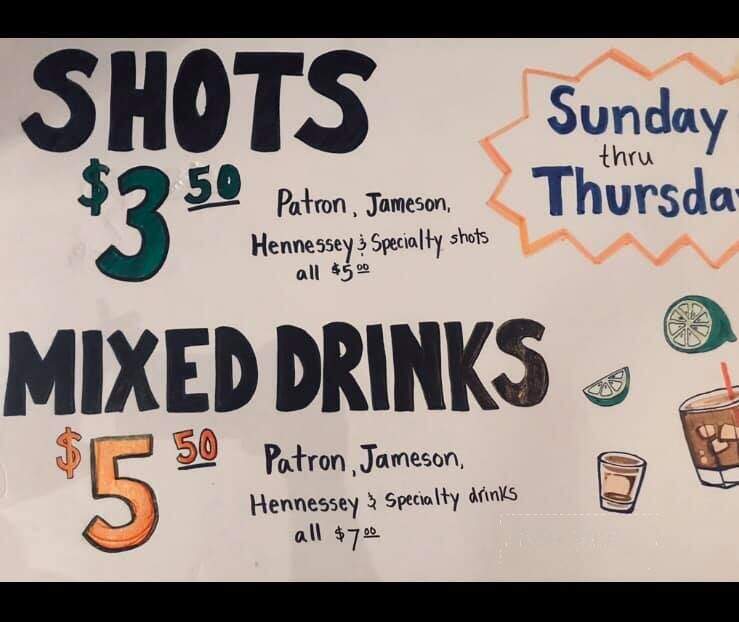 SHOTS
$3.50
Patron, Jameson,
Hennessey & Specialty shots
all $5.00
Sunday
thru
Thursda
MIXED DRINKS
$5.50
Patron, Jameson,
Hennessey & Specialty drinks
all $7.00